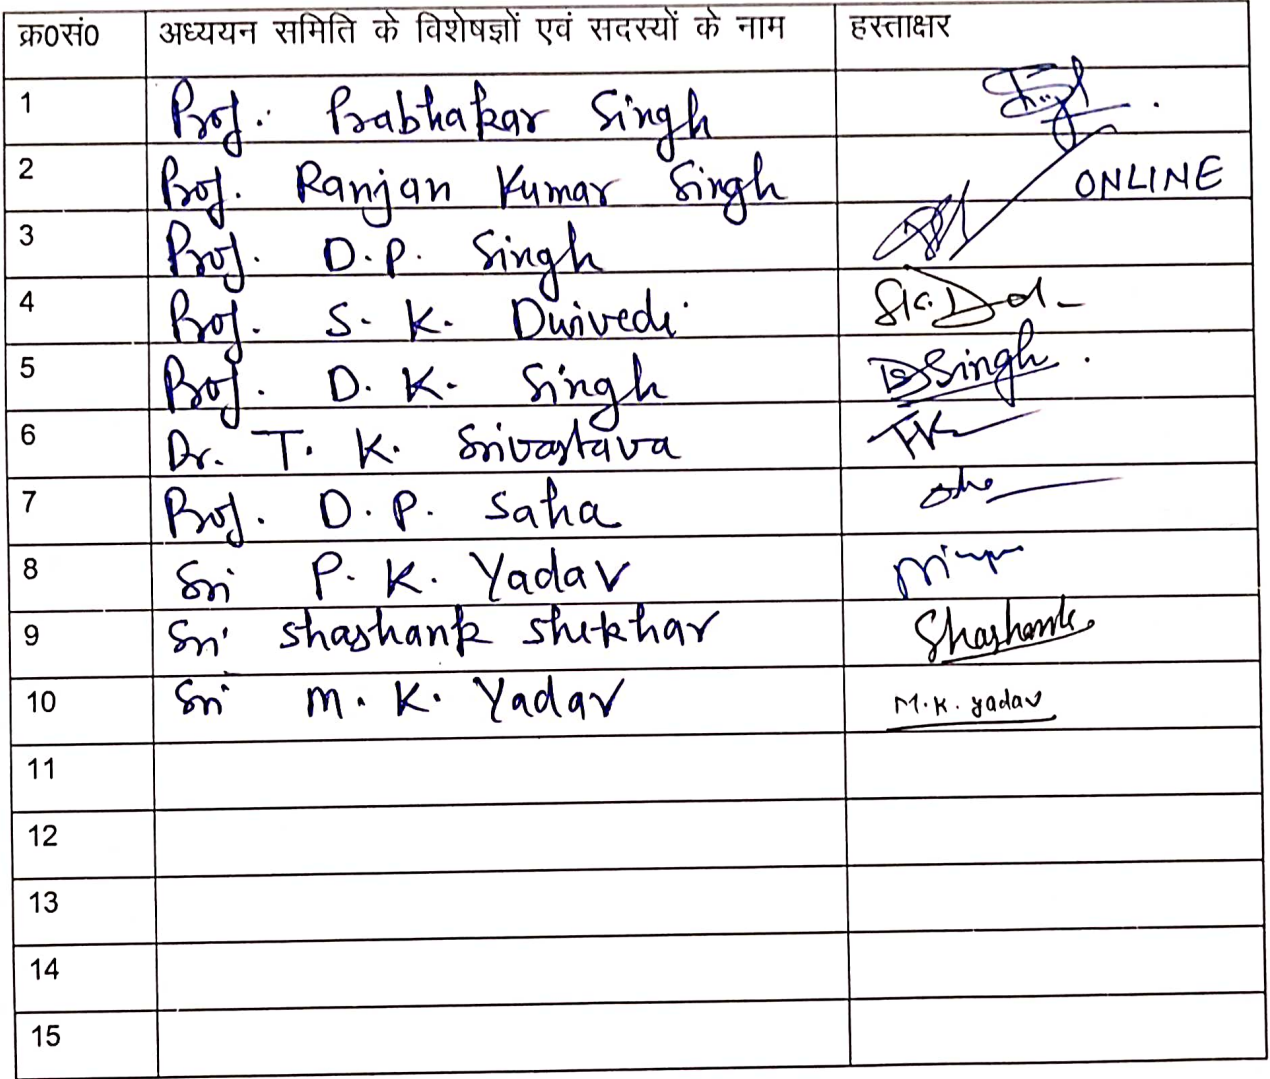 क्र0सं0 अध्ययन समिति के विशेषज्ञों एवं सदस्यों के नाम हस्ताक्षर
1 Prof. Prabhakar Singh
2 Prof. Ranjan Kumar Singh ONLINE
3 Prof. D.P. Singh
4 Prof. S. K. Dwivedi
5 Prof. D. K. Singh Singh
6 Dr. T. K. Srivastava TK
7 Prof. D.P. Saha
8 Sri P. K. Yadav
9 Sri Shashank Shekhar Shashank
10 Sri M. K. Yadav M.K. yadav
11
12
13
14
15